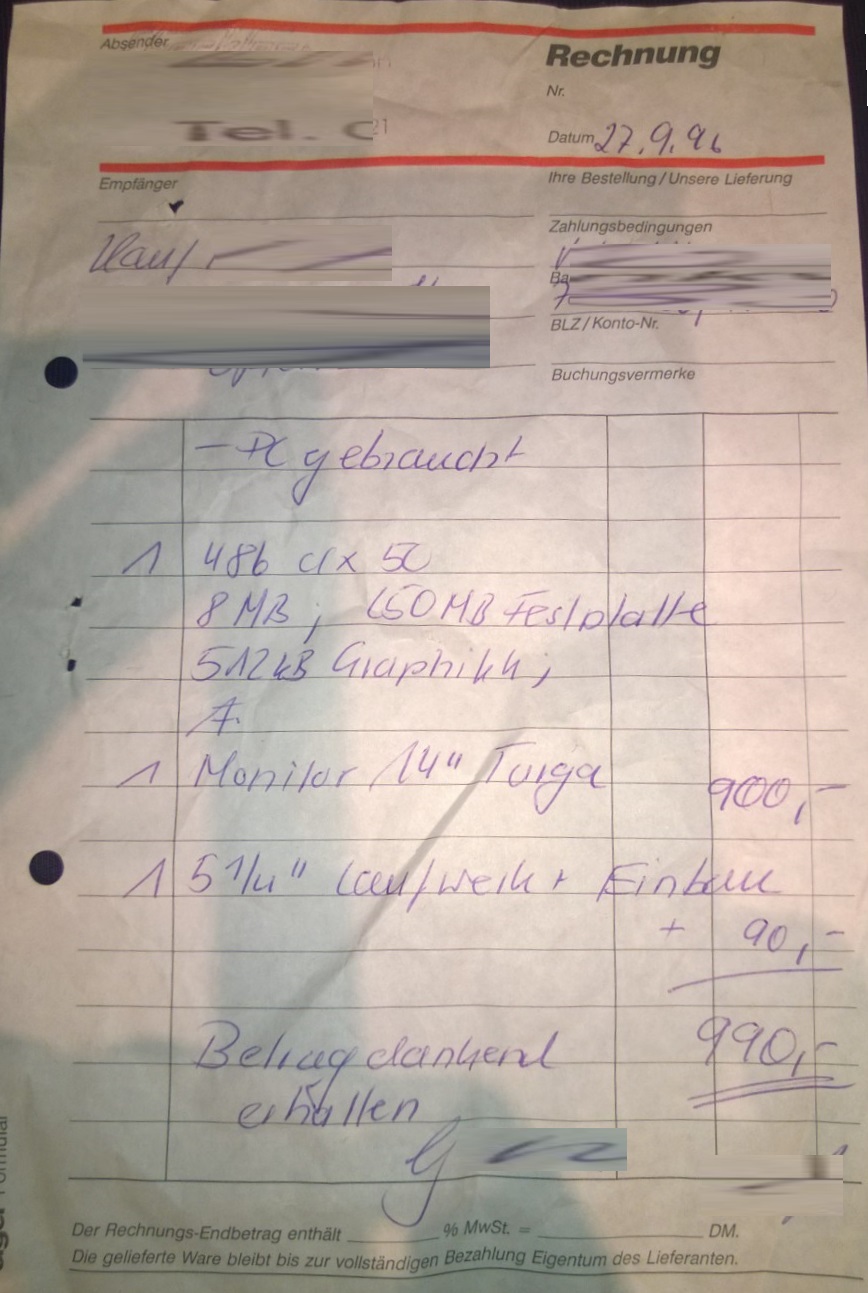 Absender
Rechnung
Nr.
Tel.
21
Datum 27.9.96
Empfänger
Ihre Bestellung / Unsere Lieferung
Zahlungsbedingungen
Ba
BLZ / Konto-Nr.
Buchungsvermerke
- PC gebraucht
1 486 dx 50
8 MB, 650 MB Festplatte
512 kB Graphikk,
1 Monitor 14" Turga
900,-
1 5 1/4" Laufwerk + Einbau
+ 90,-
Betrag dankend 990,-
erhalten
Der Rechnungs-Endbetrag enthält % MwSt. = DM.
Die gelieferte Ware bleibt bis zur vollständigen Bezahlung Eigentum des Lieferanten.
Formular